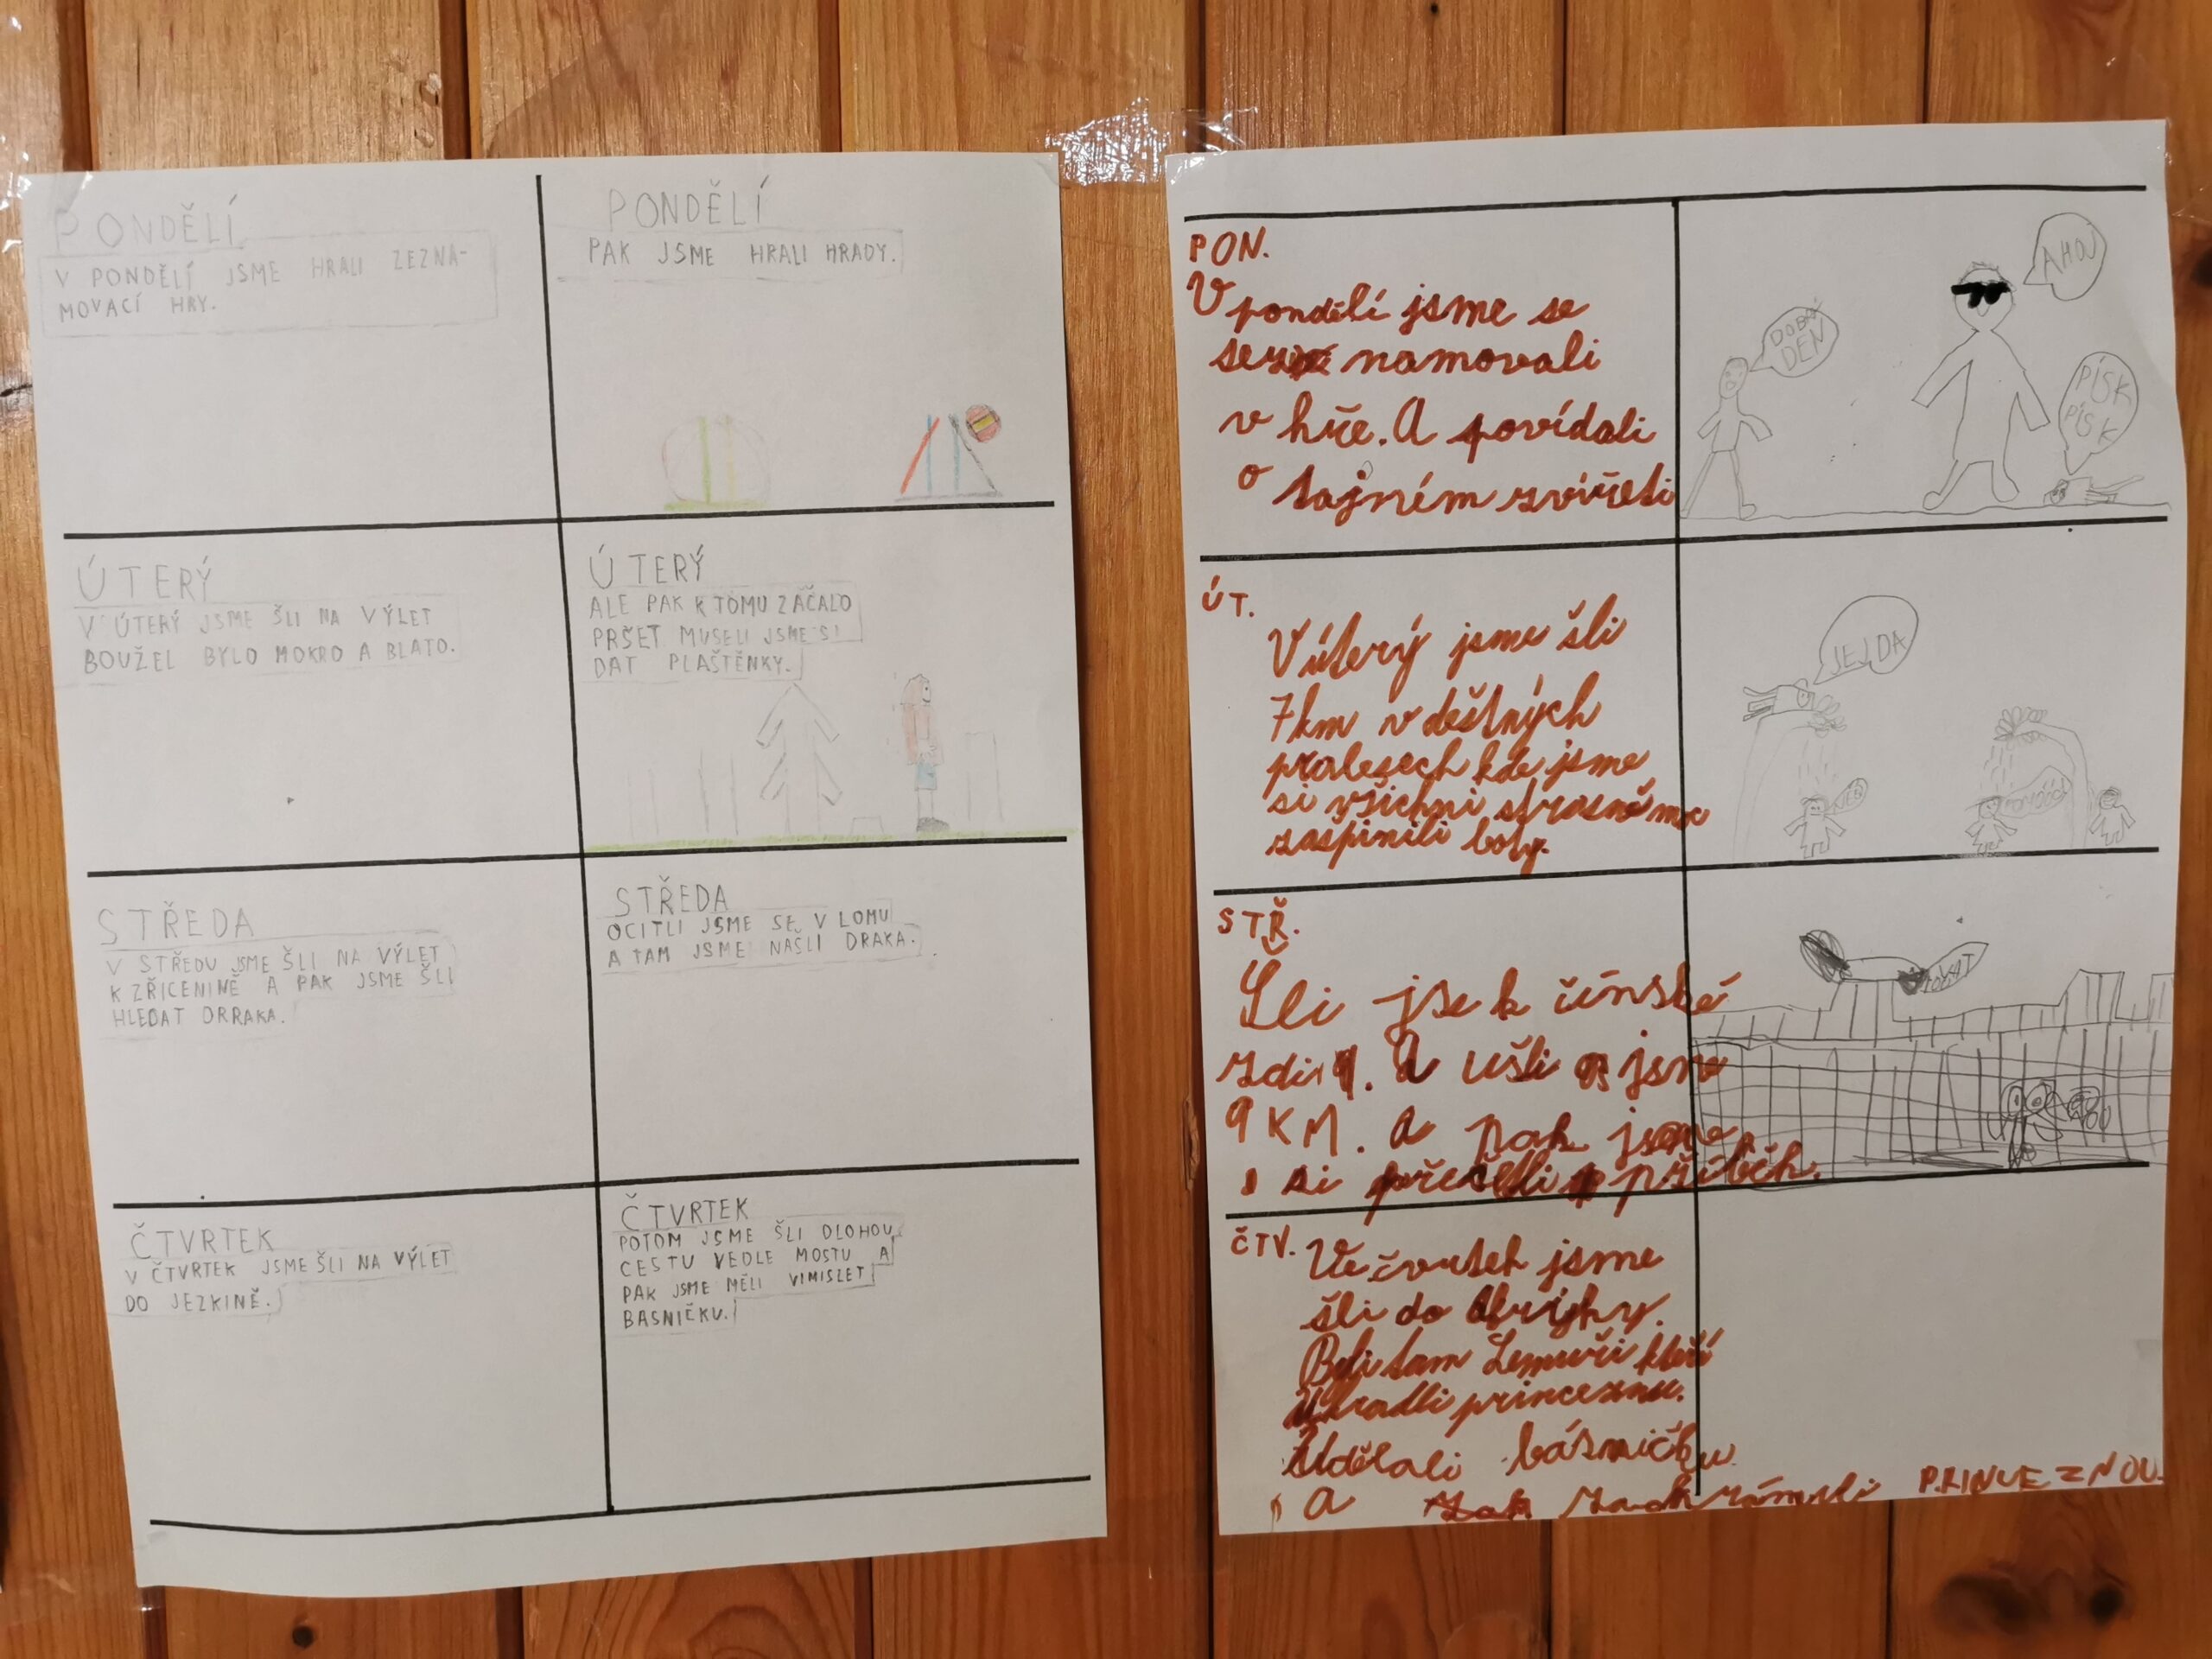 PONDĚLÍ
V PONDĚLÍ JSME HRALI ZEZNA-
MOVACÍ HRY.
PONDĚLÍ
PAK JSME HRALI HRADY.
ÚTERÝ
V ÚTERÝ JSME ŠLI NA VÝLET
BOUŽEL BYLO MOKRO A BLATO.
ÚTERÝ
ALE PAK K TOMU ZAČALO
PRŠET MUSELI JSME SI
DAT PLAŠTĚNKY.
STŘEDA
V STŘEDU JSME ŠLI NA VÝLET
K ZŘICENINĚ A PAK JSME ŠLI
HLEDAT DRRAKA.
STŘEDA
OCITLI JSME SE V LOMU
A TAM JSME NAŠLI DRAKA.
ČTVRTEK
V ČTVRTEK JSME ŠLI NA VÝLET
DO JEZKINĚ.
ČTVRTEK
POTOM JSME ŠLI DLOHOU
CESTU VEDLE MOSTU A
PAK JSME MĚLI VIMISLET
BASNIČKU.
PON.
V pondělí jsme se
namovali
v hře. A povídali
o tajném zvířeti
DOBRÝ
DEN
AHOJ
PÍSK
PÍSK
ÚT.
V úterý jsme šli
7km v deštných
pralesech kde jsme
si všichni
zašpinili boty.
JEJDA
STŘ.
Šli jse k čínské
zdi. A ušli jsme
9 KM. a pak jsme
si přečetli příběh.
ČTV.
Ve čvrtek jsme
šli do Afriky.
Beli tam Lemuři kteří
Ukradli princeznu.
Udělali básničku
a PRINCEZNOU.